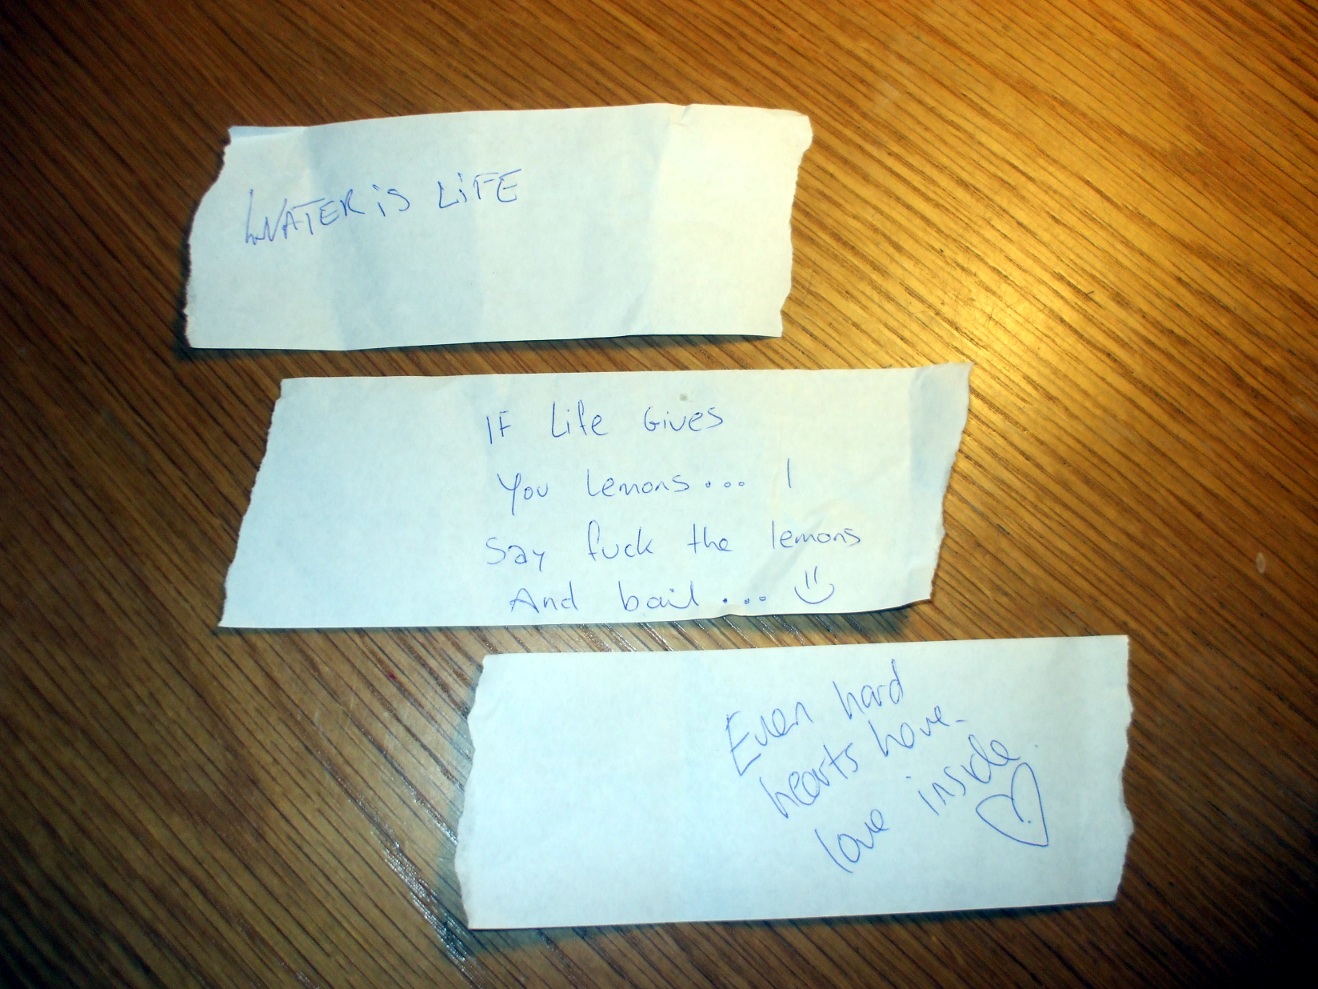 WATER iS LiFE
IF Life Gives
You lemons.... I
Say fuck the lemons
And bail....
Even hard
hearts have
love inside